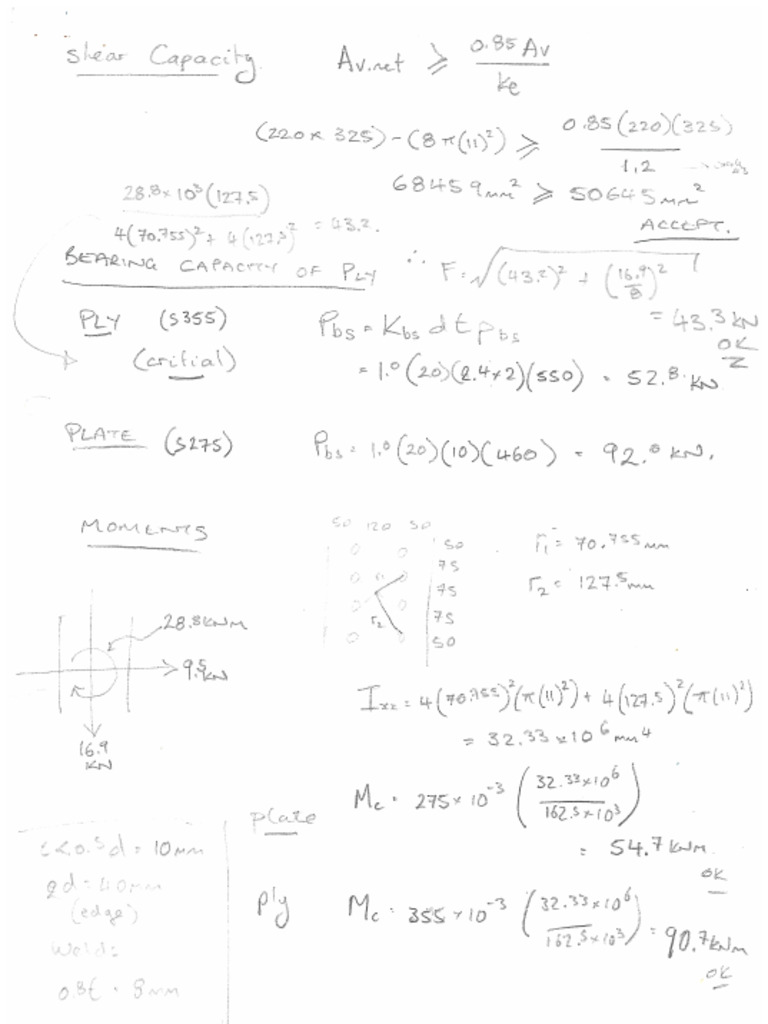 Shear Capacity. Av.net ≥ 0.85 Av / ke
(220 x 325) - (8 π(11)²) ≥ 0.85(220)(325) / 1.2
68459 mm² ≥ 50645 mm²
ACCEPT.
28.8 x 10³ (127.5) / 4(70.755)² + 4(127.5)² = 43.2.
BEARING CAPACITY OF PLY ∴ F = √((43.2)² + (16.9/8)²)
= 43.3 kN
OK
PLY (S355) Pbs = Kbs d t pbs
(critial) = 1.0(20)(2.4x2)(550) = 52.8 kN
PLATE (S275) Pbs = 1.0(20)(10)(460) = 92.0 kN.
MOMENTS
50 120 50
50
75
75
75
50
r1
r2
r1 = 70.755 mm
r2 = 127.5 mm
28.8 kNm
9.5 kN
16.9 kN
Ixx = 4(70.755)²(π(11)²) + 4(127.5)²(π(11)²)
= 32.33 x 10⁶ mm⁴
plate Mc = 275 x 10⁻³ (32.33x10⁶ / 162.5x10³)
= 54.7 kNm
OK
Ply Mc = 355 x 10⁻³ (32.33x10⁶ / 162.5x10³) = 90.7 kNm
OK
0.5d = 10mm
2d = 40mm
(edge)
Weld:
= 8mm